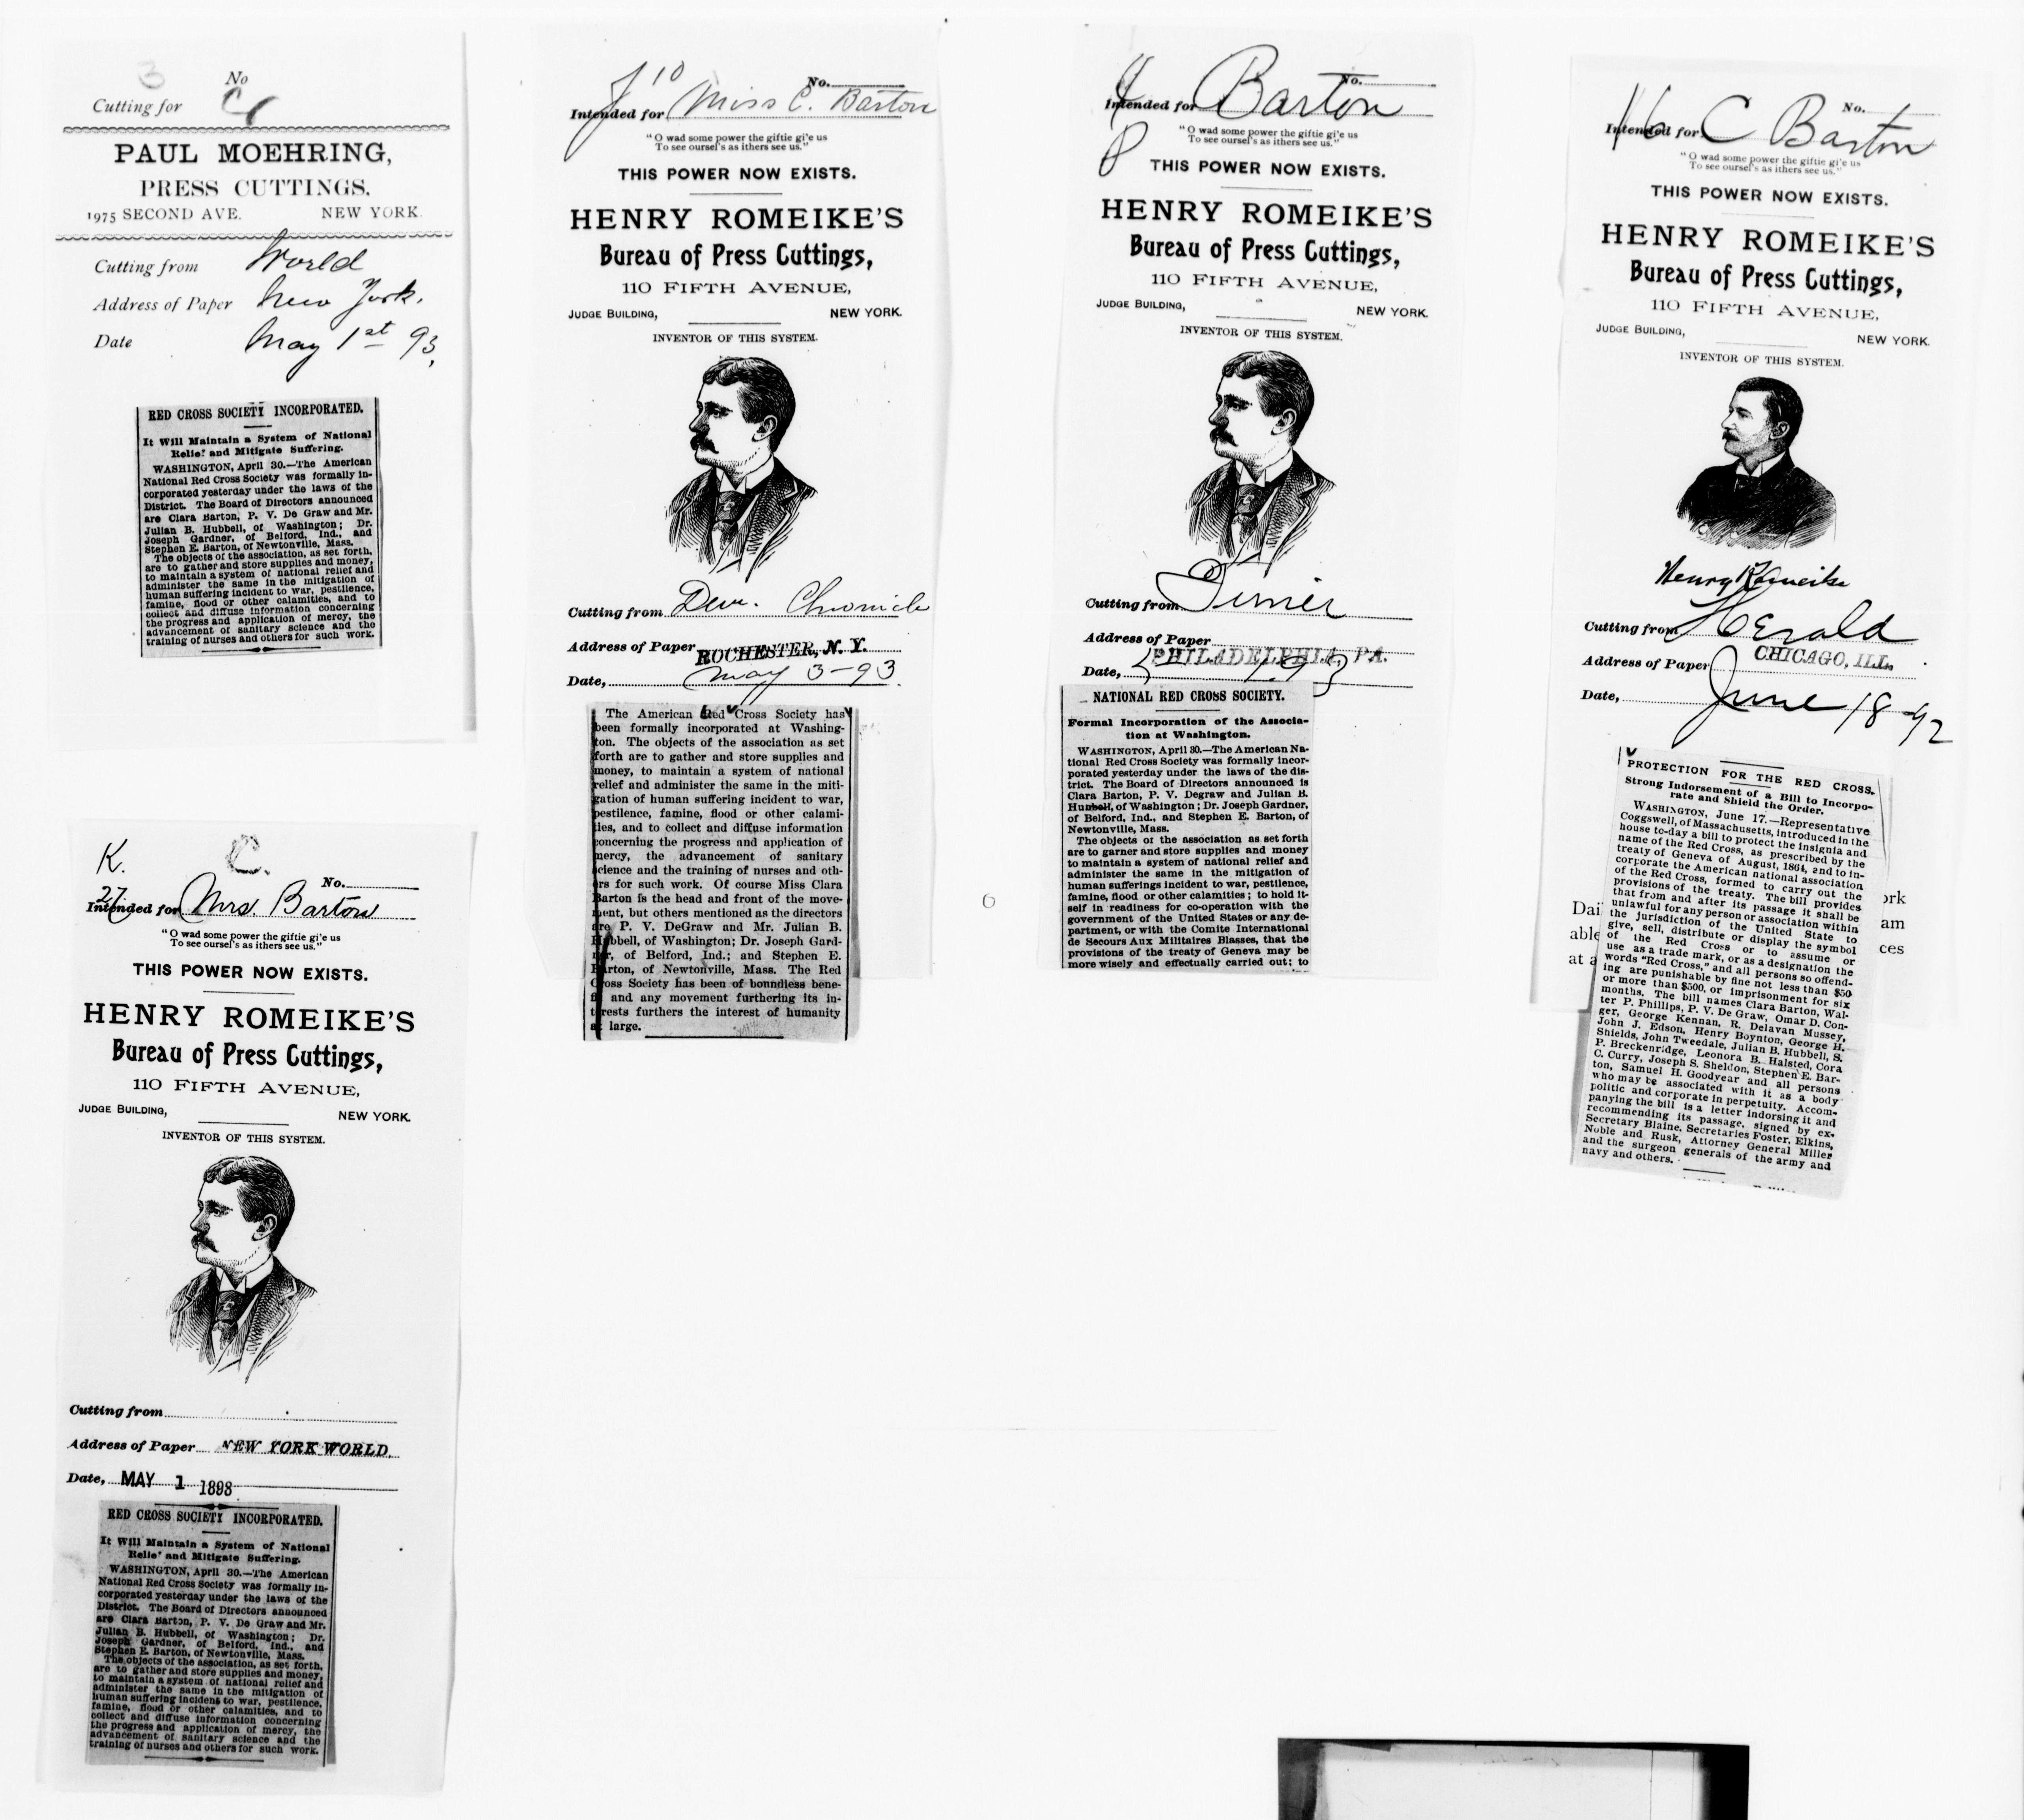 3
No
Cutting for C
PAUL MOEHRING,
PRESS CUTTINGS.
1975 SECOND AVE. NEW YORK.
Cutting from World
Address of Paper New York.
Date May 1st 93,
RED CROSS SOCIETY INCORPORATED.
It Will Maintain a System of National
Relief and Mitigate Suffering.
WASHINGTON, April 30.—The American
National Red Cross Society was formally in-
corporated yesterday under the laws of the
District. The Board of Directors announced
are Clara Barton, P. V. De Graw and Mr.
Julian B. Hubbell, of Washington; Dr.
Joseph Gardner, of Belford, Ind., and
Stephen E. Barton, of Newtonville, Mass.
The objects of the association, as set forth,
are to gather and store supplies and money,
to maintain a system of national relief and
administer the same in the mitigation of
human suffering incident to war, pestilence,
famine, flood or other calamities, and to
collect and diffuse information concerning
the progress and application of mercy, the
advancement of sanitary science and the
training of nurses and others for such work.
K. C.
27 No.
Intended for Mrs. Barton
"O wad some power the giftie gi'e us
To see oursel's as ithers see us."
THIS POWER NOW EXISTS.
HENRY ROMEIKE'S
Bureau of Press Cuttings,
110 FIFTH AVENUE,
JUDGE BUILDING, NEW YORK.
INVENTOR OF THIS SYSTEM.
Cutting from
Address of Paper NEW YORK WORLD.
Date, MAY 1 1893
RED CROSS SOCIETY INCORPORATED.
It Will Maintain a System of National
Relief and Mitigate Suffering.
WASHINGTON, April 30.—The American
National Red Cross Society was formally in-
corporated yesterday under the laws of the
District. The Board of Directors announced
are Clara Barton, P. V. De Graw and Mr.
Julian B. Hubbell, of Washington; Dr.
Joseph Gardner, of Belford, Ind., and
Stephen E. Barton, of Newtonville, Mass.
The objects of the association, as set forth,
are to gather and store supplies and money,
to maintain a system of national relief and
administer the same in the mitigation of
human suffering incident to war, pestilence,
famine, flood or other calamities, and to
collect and diffuse information concerning
the progress and application of mercy, the
advancement of sanitary science and the
training of nurses and others for such work.
J 10 No.
Intended for Miss C. Barton
"O wad some power the giftie gi'e us
To see oursel's as ithers see us."
THIS POWER NOW EXISTS.
HENRY ROMEIKE'S
Bureau of Press Cuttings,
110 FIFTH AVENUE,
JUDGE BUILDING, NEW YORK.
INVENTOR OF THIS SYSTEM.
Cutting from Dem. Chronicle
Address of Paper ROCHESTER, N. Y.
Date, May 3-93.
The American Red Cross Society has
been formally incorporated at Washing-
ton. The objects of the association as set
forth are to gather and store supplies and
money, to maintain a system of national
relief and administer the same in the miti-
gation of human suffering incident to war,
pestilence, famine, flood or other calami-
ties, and to collect and diffuse information
concerning the progress and application of
mercy, the advancement of sanitary
science and the training of nurses and oth-
ers for such work. Of course Miss Clara
Barton is the head and front of the move-
ment, but others mentioned as the directors
are P. V. DeGraw and Mr. Julian B.
Hubbell, of Washington; Dr. Joseph Gard-
ner, of Belford, Ind.; and Stephen E.
Barton, of Newtonville, Mass. The Red
Cross Society has been of boundless bene-
fit and any movement furthering its in-
terests furthers the interest of humanity
at large.
No.
Intended for Barton
"O wad some power the giftie gi'e us
To see oursel's as ithers see us."
THIS POWER NOW EXISTS.
HENRY ROMEIKE'S
Bureau of Press Cuttings,
110 FIFTH AVENUE,
JUDGE BUILDING, NEW YORK.
INVENTOR OF THIS SYSTEM.
Cutting from Times
Address of Paper
PHILADELPHIA, PA.
Date, 5 1 93
NATIONAL RED CROSS SOCIETY.
Formal Incorporation of the Associa-
tion at Washington.
WASHINGTON, April 30.—The American Na-
tional Red Cross Society was formally incor-
porated yesterday under the laws of the dis-
trict. The Board of Directors announced is
Clara Barton, P. V. Degraw and Julian B.
Hubbell, of Washington; Dr. Joseph Gardner,
of Belford, Ind., and Stephen E. Barton, of
Newtonville, Mass.
The objects of the association as set forth
are to garner and store supplies and money
to maintain a system of national relief and
administer the same in the mitigation of
human sufferings incident to war, pestilence,
famine, flood or other calamities; to hold it-
self in readiness for co-operation with the
government of the United States or any de-
partment, or with the Comite International
de Secours Aux Militaires Blasses, that the
provisions of the treaty of Geneva may be
more wisely and effectually carried out; to
16 No.
Intended for C Barton
"O wad some power the giftie gi'e us
To see oursel's as ithers see us."
THIS POWER NOW EXISTS.
HENRY ROMEIKE'S
Bureau of Press Cuttings,
110 FIFTH AVENUE,
JUDGE BUILDING, NEW YORK.
INVENTOR OF THIS SYSTEM.
Henry Romeike
Cutting from Herald
Address of Paper CHICAGO, ILL.
Date, June 18-92
PROTECTION FOR THE RED CROSS.
Strong Indorsement of a Bill to Incorpo-
rate and Shield the Order.
WASHINGTON, June 17.—Representative
Coggswell, of Massachusetts, introduced in the
house to-day a bill to protect the insignia and
name of the Red Cross, as prescribed by the
treaty of Geneva of August, 1864, and to in-
corporate the American national association
of the Red Cross, formed to carry out the
provisions of the treaty. The bill provides
that from and after its passage it shall be
unlawful for any person or association within
the jurisdiction of the United State to
give, sell, distribute or display the symbol
of the Red Cross or to assume or
use as a trade mark, or as a designation the
words "Red Cross," and all persons so offend-
ing are punishable by fine not less than $50
or more than $500, or imprisonment for six
months. The bill names Clara Barton, Wal-
ter P. Phillips, P. V. De Graw, Omar D. Con-
ger, George Kennan, R. Delavan Mussey,
John J. Edson, Henry Boynton, George H.
Shields, John Tweedale, Julian B. Hubbell, S.
P. Breckenridge, Leonora B. Halsted, Cora
C. Curry, Joseph S. Sheldon, Stephen E. Bar-
ton, Samuel H. Goodyear and all persons
who may be associated with it as a body
politic and corporate in perpetuity. Accom-
panying the bill is a letter indorsing it and
recommending its passage, signed by ex-
Secretary Blaine, Secretaries Foster, Elkins,
Noble and Rusk, Attorney General Miller
and the surgeon generals of the army and
navy and others.